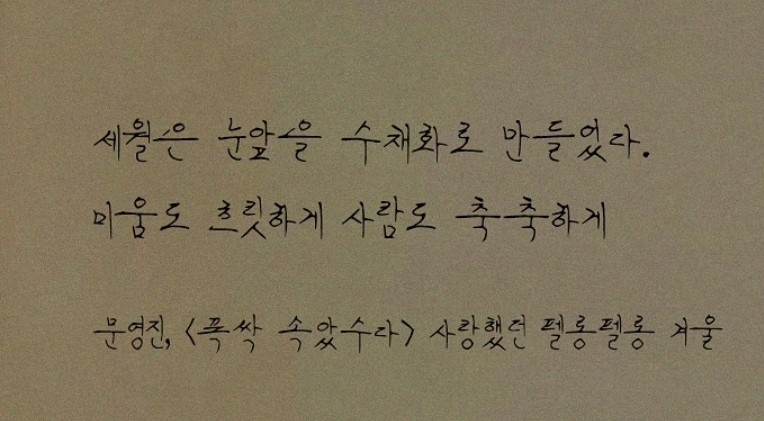 세월은 눈앞을 수채화로 만들었다.
미움도 흐릿하게 사람도 축축하게
문영진, <폭싹 속았수다> 사랑했던 펠롱펠롱 겨울